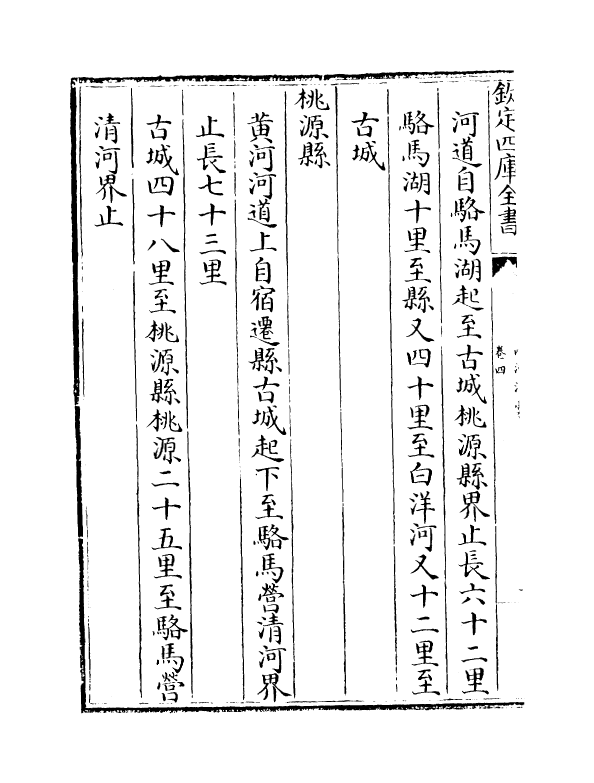 欽定四庫全書
卷四
河道自駱馬湖起至古城桃源縣界止長六十二里
駱馬湖十里至縣又四十里至白洋河又十二里至
古城
桃源縣
黄河河道上自宿遷縣古城起下至駱馬營清河界
止長七十三里
古城四十八里至桃源縣桃源二十五里至駱馬營
清河界止